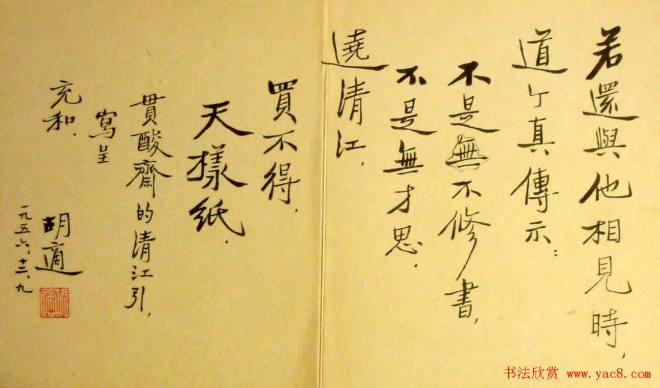 若還與他相見時,
道个真傳示:
不是無不修書,
不是無才思,
遶清江,
買不得,
天樣紙.
貫酸齋的清江引,
寫呈
充和.
胡適
一九五六、十二、九
书法欣赏 www.yac8.com